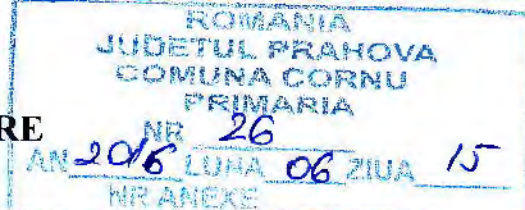 ROMANIA
JUDETUL PRAHOVA
COMUNA CORNU
PRIMARIA
RE
NR 26
AN 2016 LUNA 06 ZIUA 15
NR ANEXE